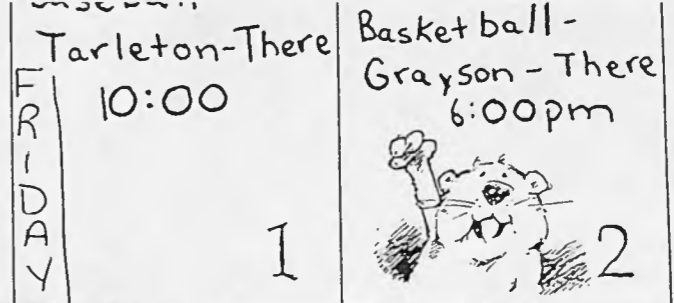 Baseball
Tarleton-There
10:00
FRIDAY
1
Basketball-
Grayson-There
6:00pm
2